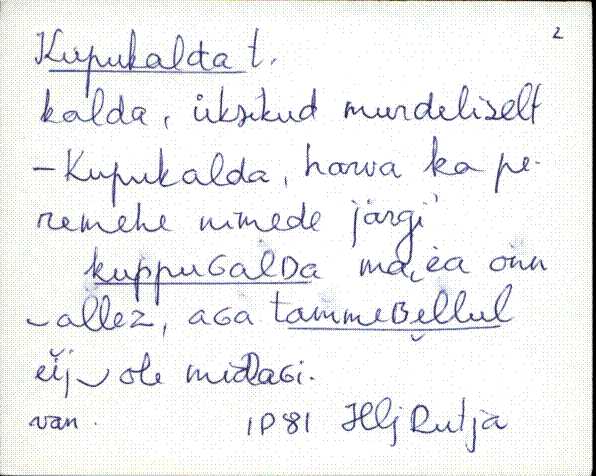 2
Kupukalda t.
kalda, üksikud murdeliselt
- Kupukalda, harva ka pe-
remehe nimede järgi
kuppuGalDa ma, ea õnn
allez, aGa tammeBellul
eij ole miDaGi.
van. IP 81 Hlj